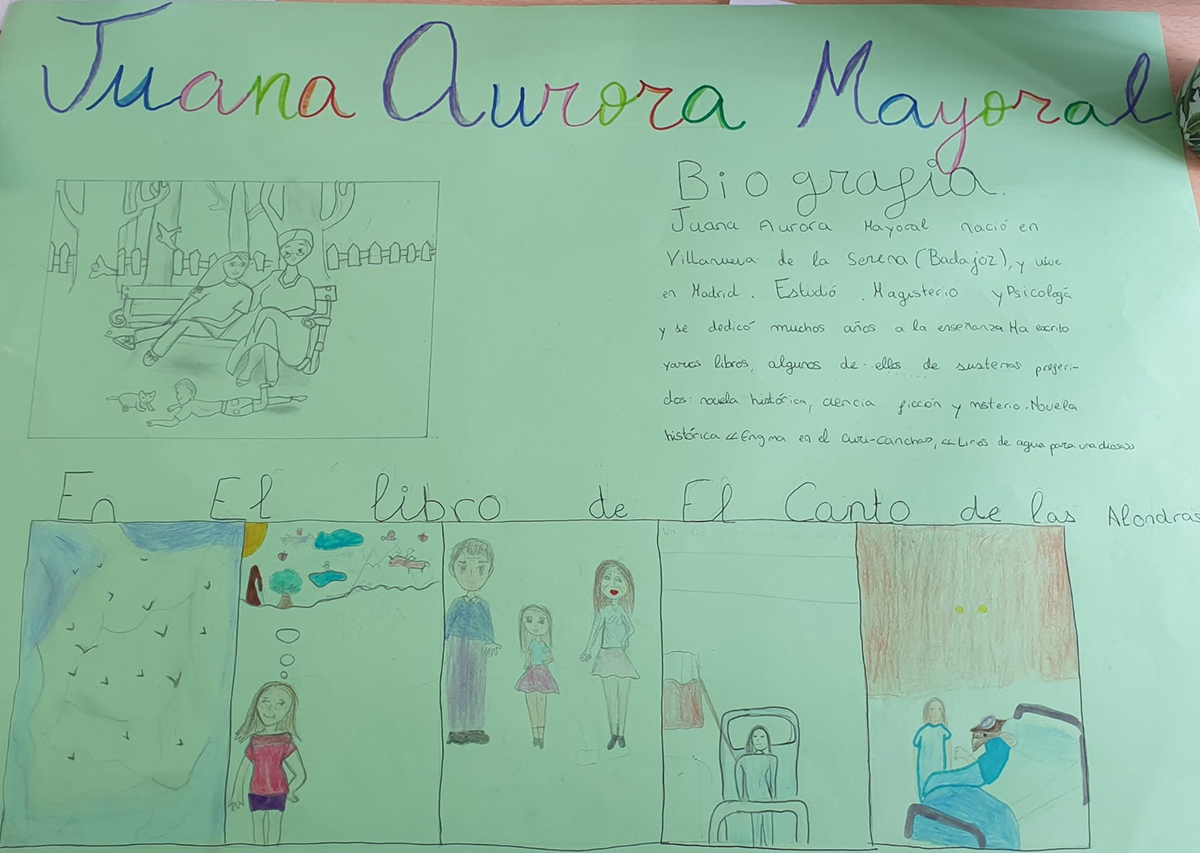 Juana Aurora Mayoral
Biografia.
Juana Aurora Mayoral nació en
Villanueva de la Serena (Badajoz), y vive
en Madrid. Estudió Magisterio y Psicología
y se dedicó muchos años a la enseñanza Ha escrito
varios libros, algunos de ellos de sus temas preferi-
dos: novela histórica, ciencia ficción y misterio. Novela
histórica «Enigma en el Curi-cancha», «Lirios de agua para una diosa»
En El libro de El Canto de las Alondras